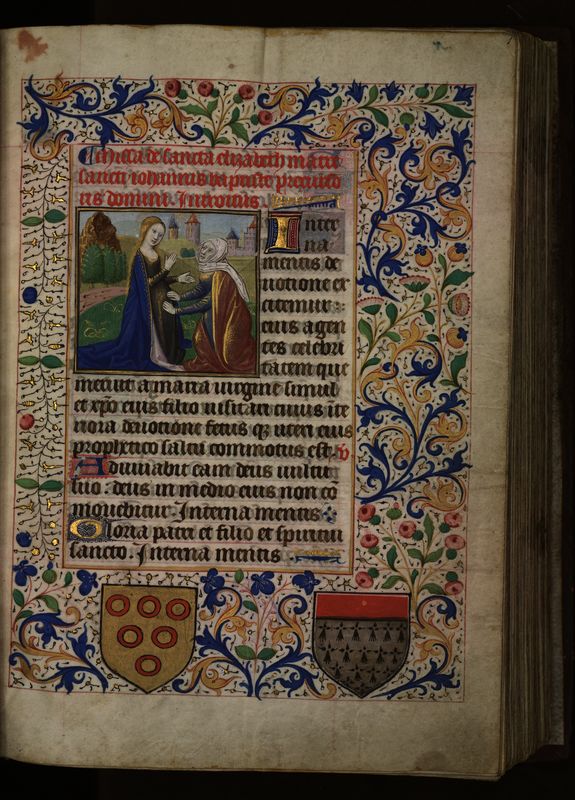 Missa de sancta elizabeth matre
sancti iohannis baptiste precurso
ris domini. Introitus.
Inter
na
mentis de
uotione ex
citemur :
eius agen
tes celebri
tatem que
meruit a maria uirgine simul
et xpo eius filio uisitari cuius ite
nora deuotione fetus qz uteri eius
prophetico saltu commotus est. v
Adiuuabit eam deus uultu
suo : deus in medio eius non co
mouebitur. Interna mentis
Gloria patri et filio et spiritui
sancto. Interna mentis